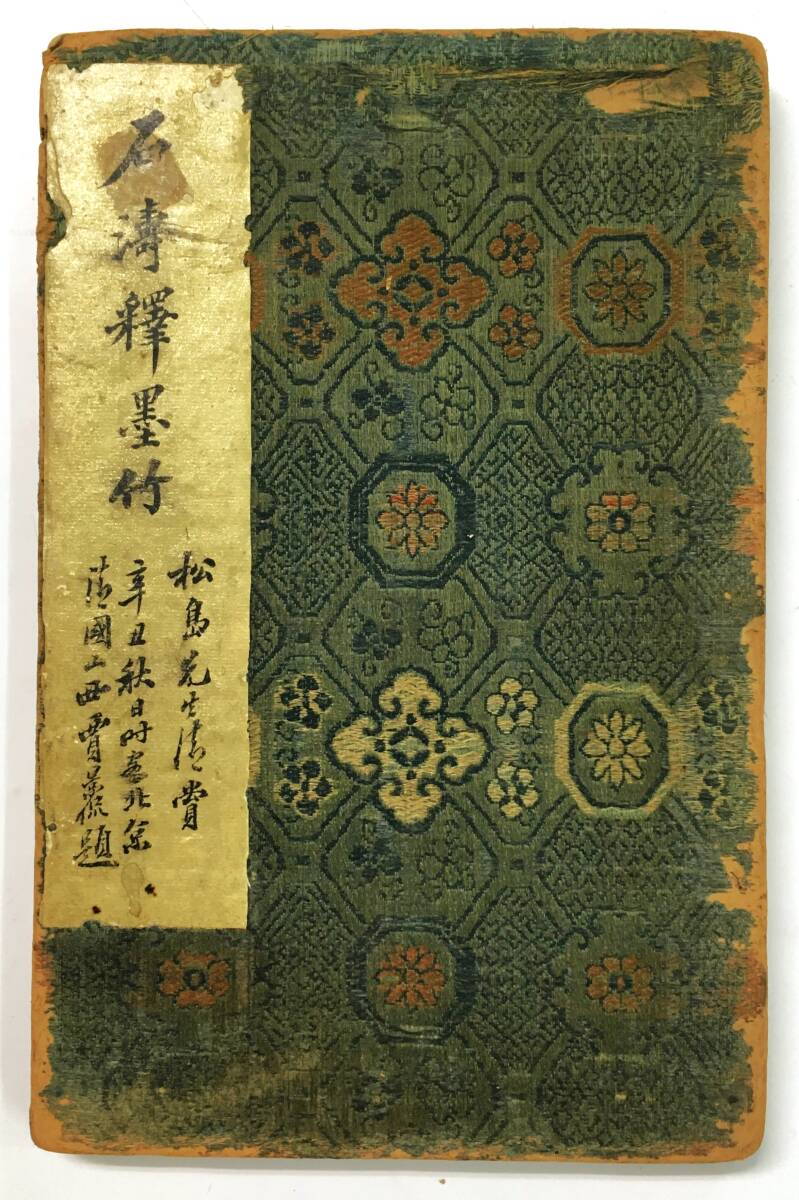 石濤釋墨竹
松島先生清賞
辛丑秋日時寓北京
清國山西賈景僩題